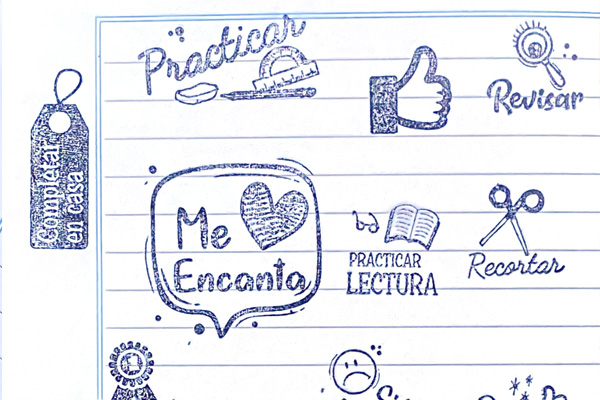 Practicar
Revisar
Completar
en casa
Me
Encanta
PRACTICAR
LECTURA
Recortar